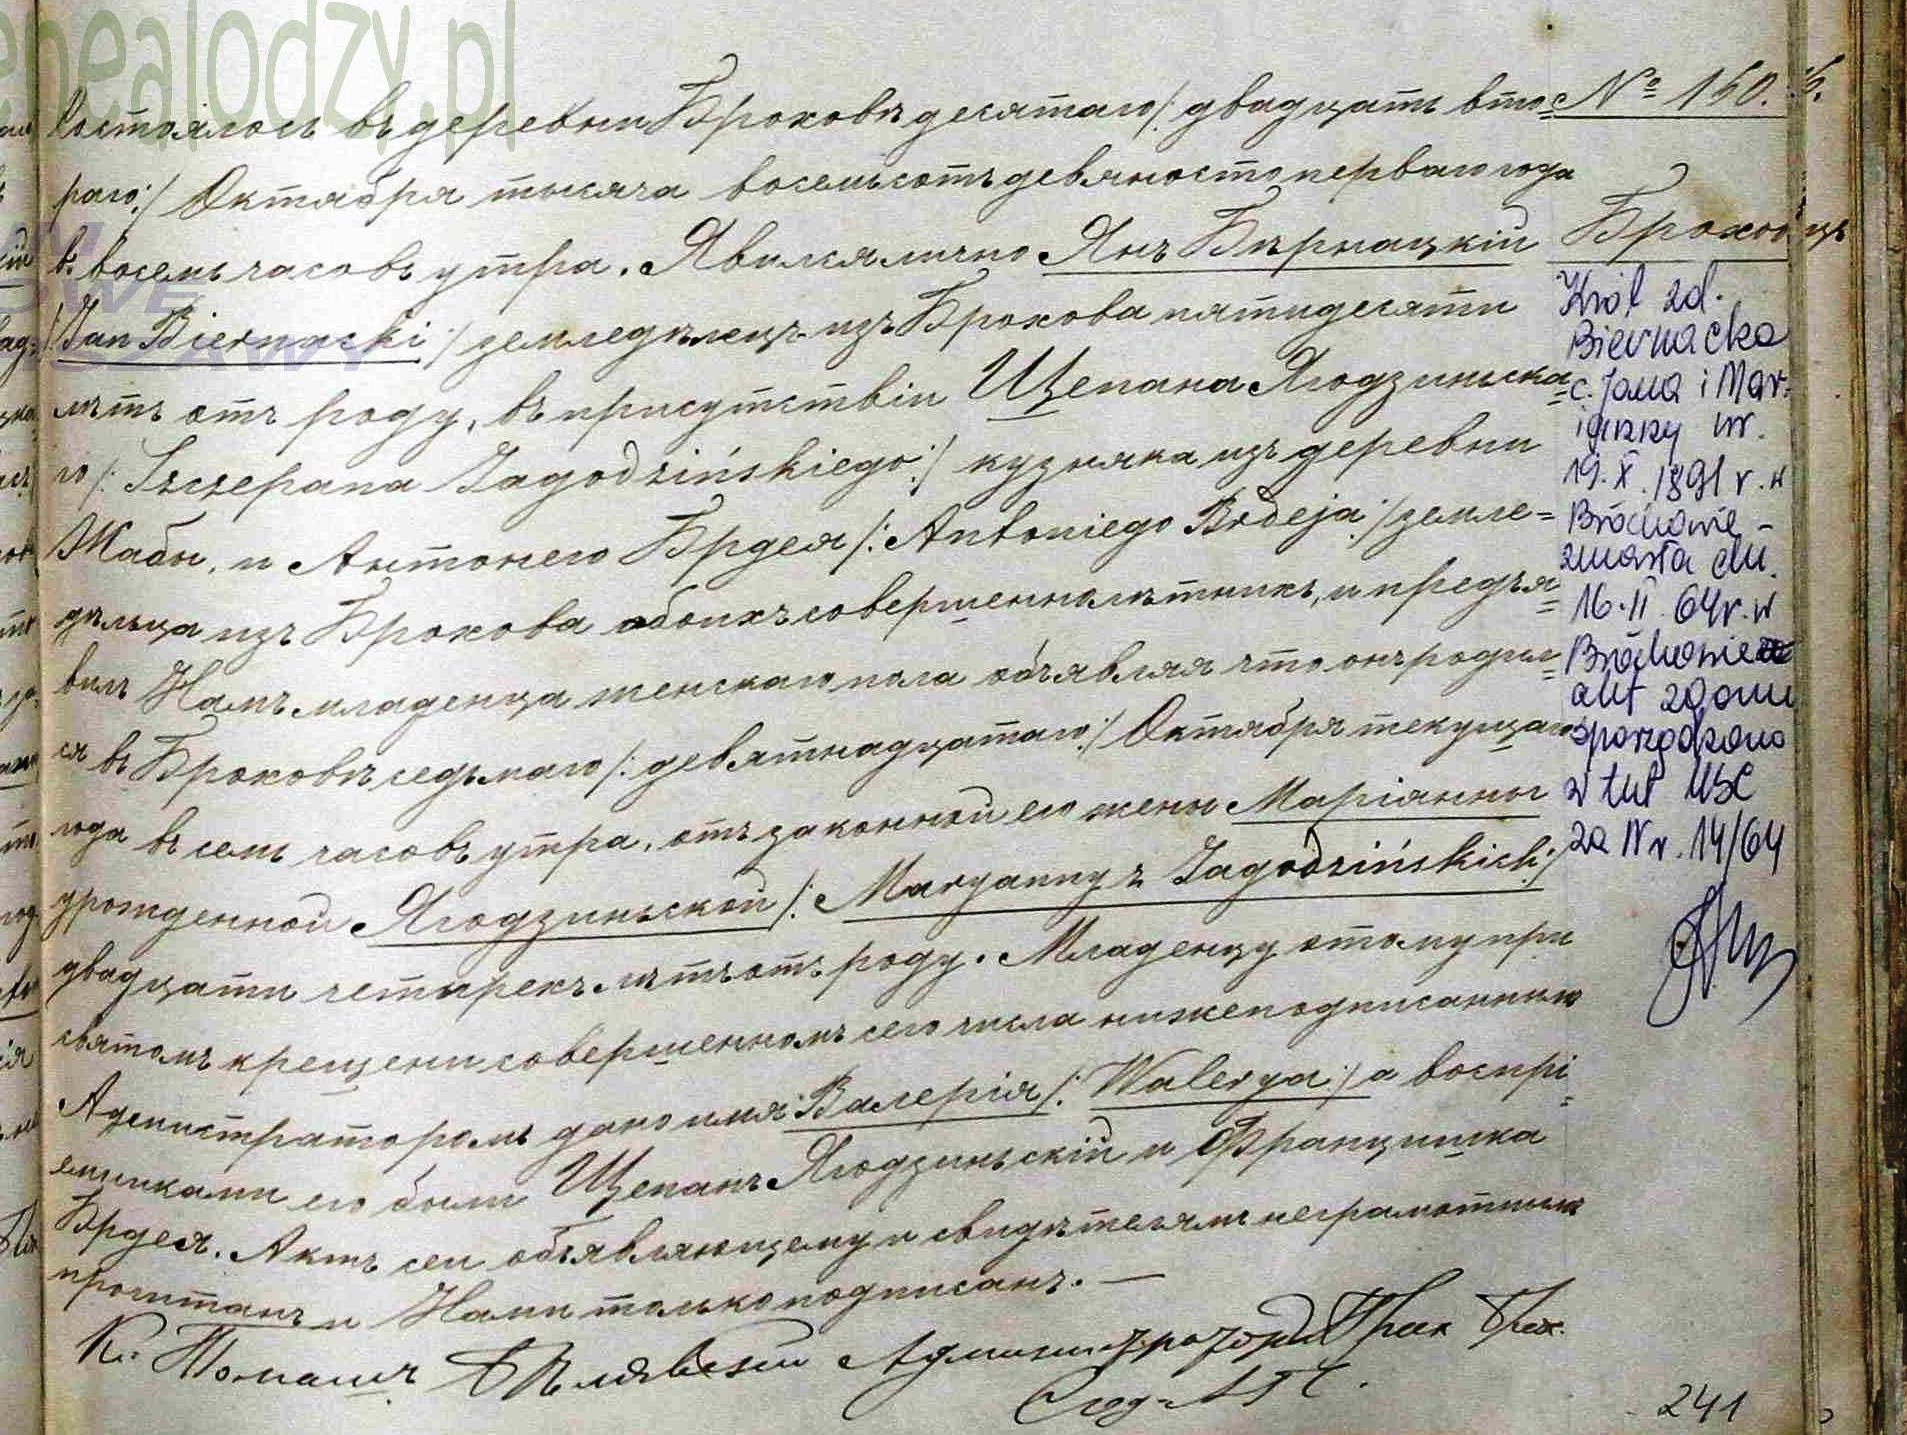 genealodzy.pl
№ 150.
Состоялось въ деревни Броховѣ десятаго /: двадцать вто=
раго :/ Октября тысяча восемьсотъ девяносто перваго года
въ восемь часовъ утра. Явился лично Янъ Бѣрнацкій
Броховъ
/: Jan Biernacki :/ земледѣлецъ изъ Брохова пятидесяти
лѣтъ отъ роду, въ присутствіи Щепана Ягодзиньска=
го /: Szczepana Jagodzińskiego :/ кузняка изъ деревни
Жабы, и Антонего Брдея /: Antoniego Brdeja :/ земле=
дѣльца изъ Брохова обоихъ совершеннолѣтнихъ, и предъя=
вилъ Намъ младенца женскаго пола объявляя что онъ родил=
ся въ Броховѣ седьмаго /: девятнадцатаго :/ Октября текущаго
года въ семь часовъ утра, отъ законной его жены Маріянны
урожденной Ягодзиньской /: Maryanny z Jagodzińskich :/
двадцати четырехъ лѣтъ отъ роду. Младенцу этому при
святомъ крещени совершенномъ сего числа нижеподписаннымъ
Администраторомъ дано имя Валерія /: Walerya :/ а воспрі=
емниками его были Щепанъ Ягодзиньскій и Францишка
Брдея. Актъ сей объявляющему и свидѣтелямъ неграмотнымъ
прочитанъ и Нами только подписанъ. —
Кс. Томашъ Администраторъ
Król zd.
Biernacka
c. Jana i Mar-
ianny ur.
19.X.1891 r. w
Brochowie -
zmarła dn.
16.II.64 r. w
Brochowie
akt zgonu
sporządzono
w tut USC
za Nr. 14/64
241